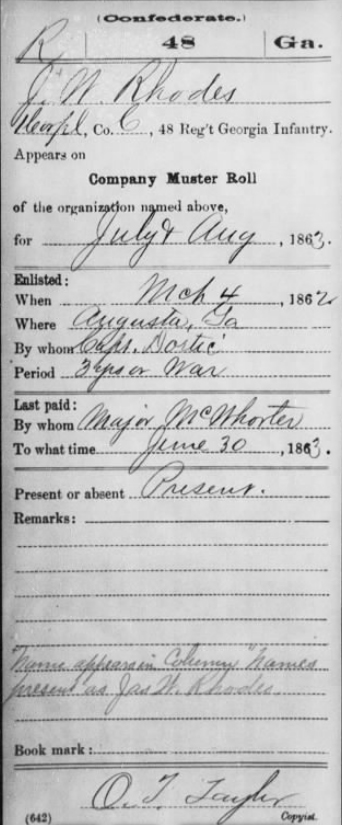 (Confederate.)
R | 48 | Ga.
J. W. Rhodes
, Co. C, 48 Reg't Georgia Infantry.
Appears on
Company Muster Roll
of the organization named above,
for July & Aug, 1863.
Enlisted:
When Mch 4, 1862
Where Augusta, Ga
By whom Capt. Dortic
Period 3 yrs or War
Last paid:
By whom Major McWhorter
To what time June 30, 1863.
Present or absent Present.
Remarks:
Name appears in Column "Names
present" as Jas W. Rhodes
Book mark:
O. T. Taylor
(642) Copyist.